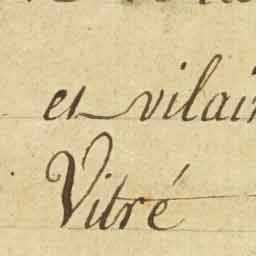 et vilain
Vitré